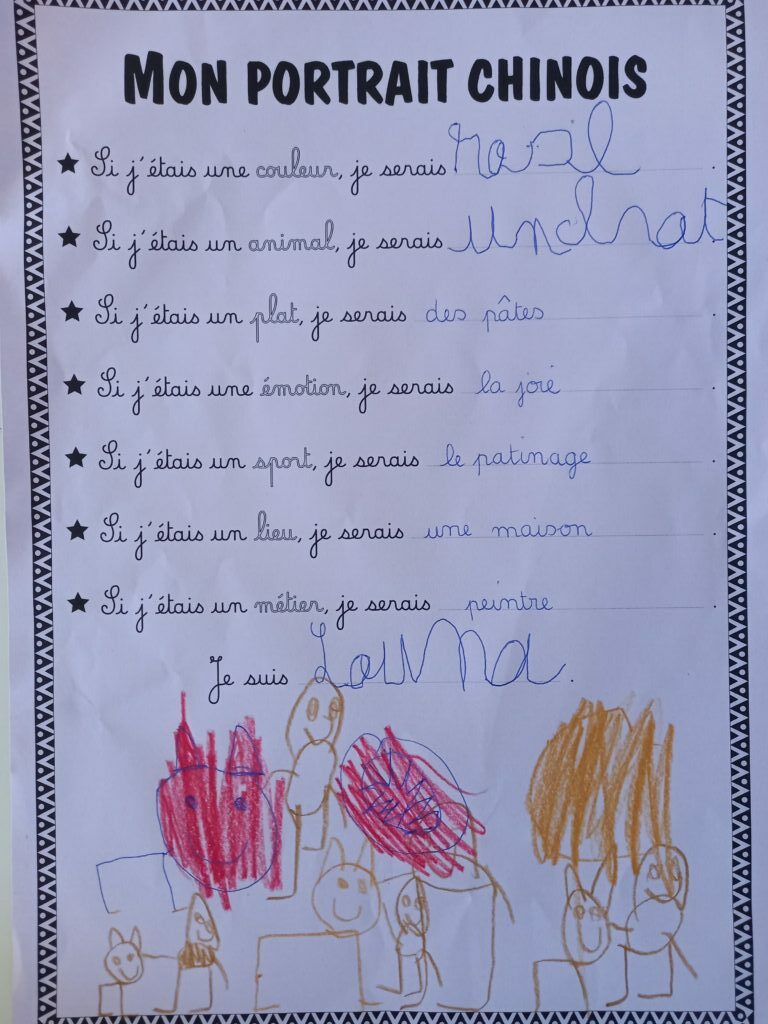 MON PORTRAIT CHINOIS
★ Si j'étais une couleur, je serais .
★ Si j'étais un animal, je serais un chat
★ Si j'étais un plat, je serais des pâtes .
★ Si j'étais une émotion, je serais la joie .
★ Si j'étais un sport, je serais le patinage .
★ Si j'étais un lieu, je serais une maison .
★ Si j'étais un métier, je serais peintre .
Je suis Louna .